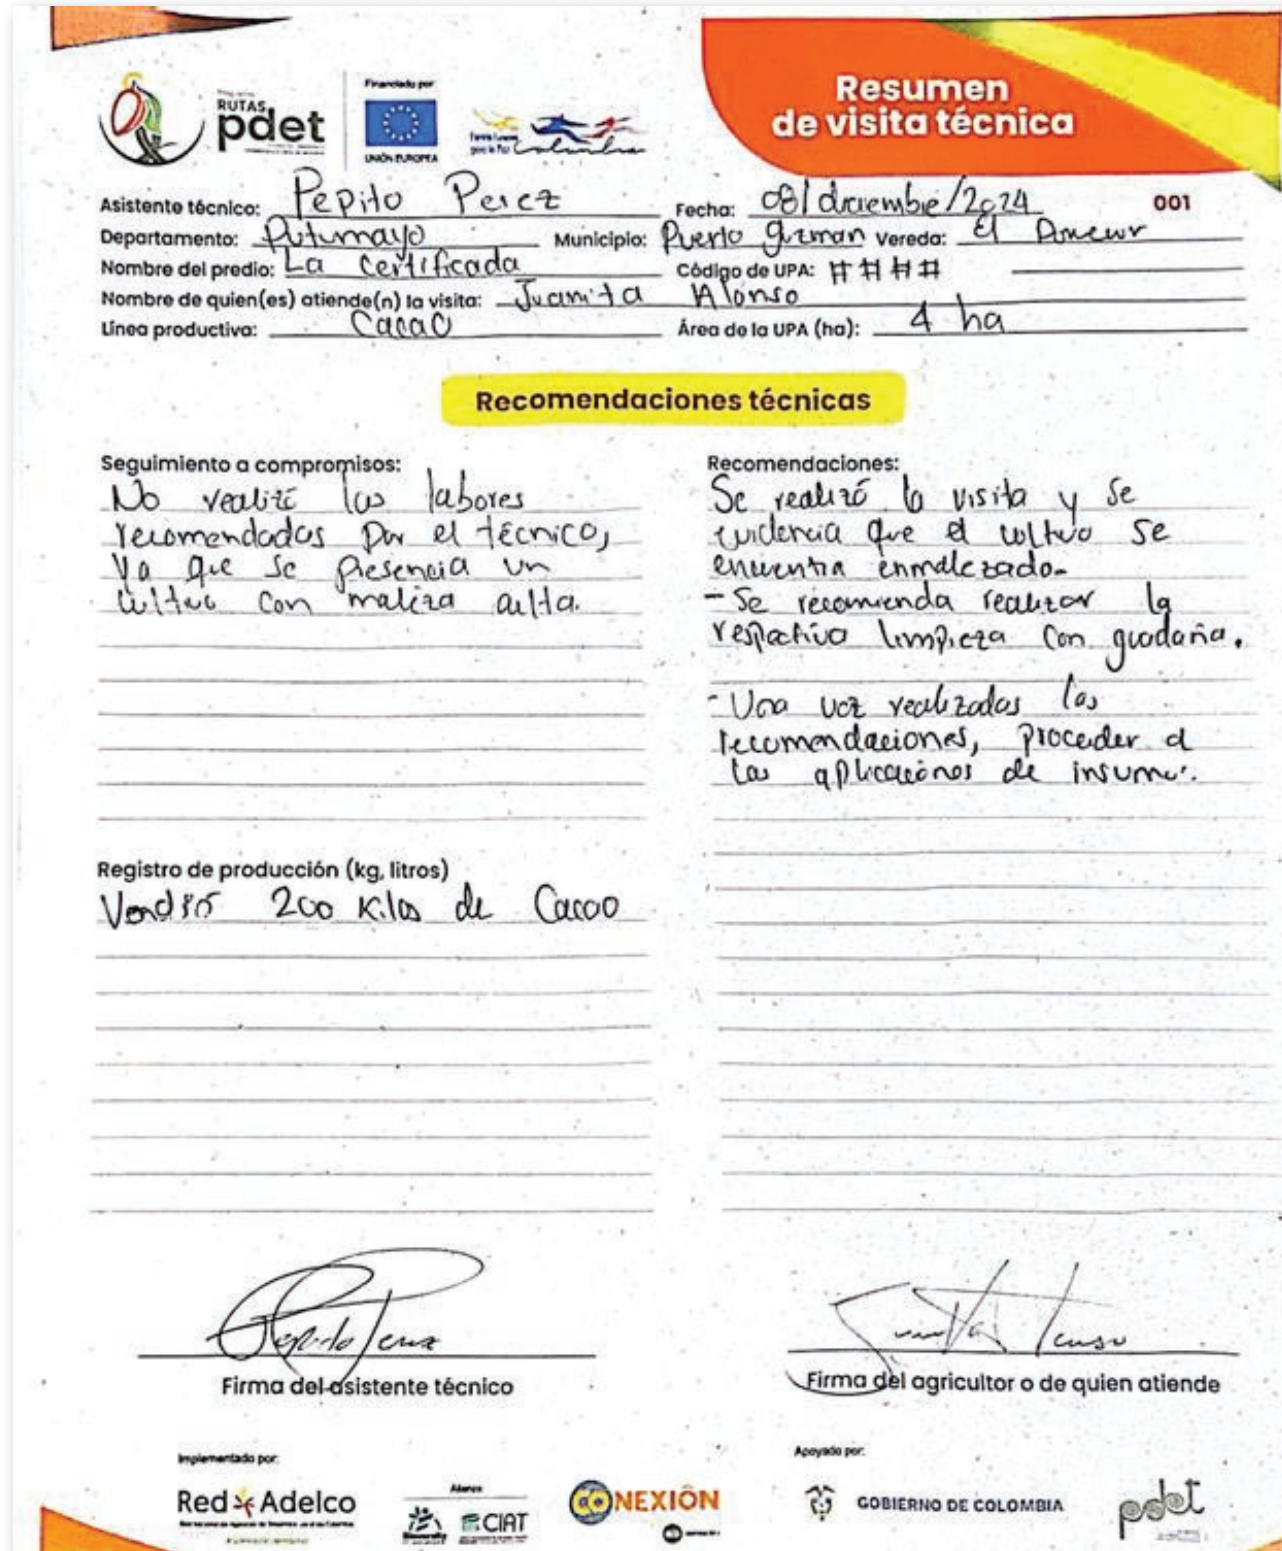 RUTAS
pdet
Financiado por:
UNIÓN EUROPEA
Resumen
de visita técnica
Asistente técnico: Pepito Perez Fecha: 08/diciembre/2024 001
Departamento: Putumayo Municipio: Puerto Guzman Vereda: El
Nombre del predio: La Certificada Código de UPA: ####
Nombre de quien(es) atiende(n) la visita: Juanita Alonso
Línea productiva: Cacao Área de la UPA (ha): 4 ha
Recomendaciones técnicas
Seguimiento a compromisos:
No realizó las labores
recomendadas por el técnico,
Ya que se presencia un
cultivo con maleza alta.
Recomendaciones:
Se realizó la visita y se
evidencia que el cultivo se
encuentra enmalezado.
- Se recomienda realizar la
respectiva limpieza con guadaña.
- Una vez realizadas las
recomendaciones, proceder a
las aplicaciones de insumos.
Registro de producción (kg, litros)
Vendió 200 Kilos de Cacao
Pepito Perez
Firma del asistente técnico
Firma del agricultor o de quien atiende
Implementado por:
Red Adelco
Alianza
CIAT
CONEXIÓN
Apoyado por:
GOBIERNO DE COLOMBIA
pdet